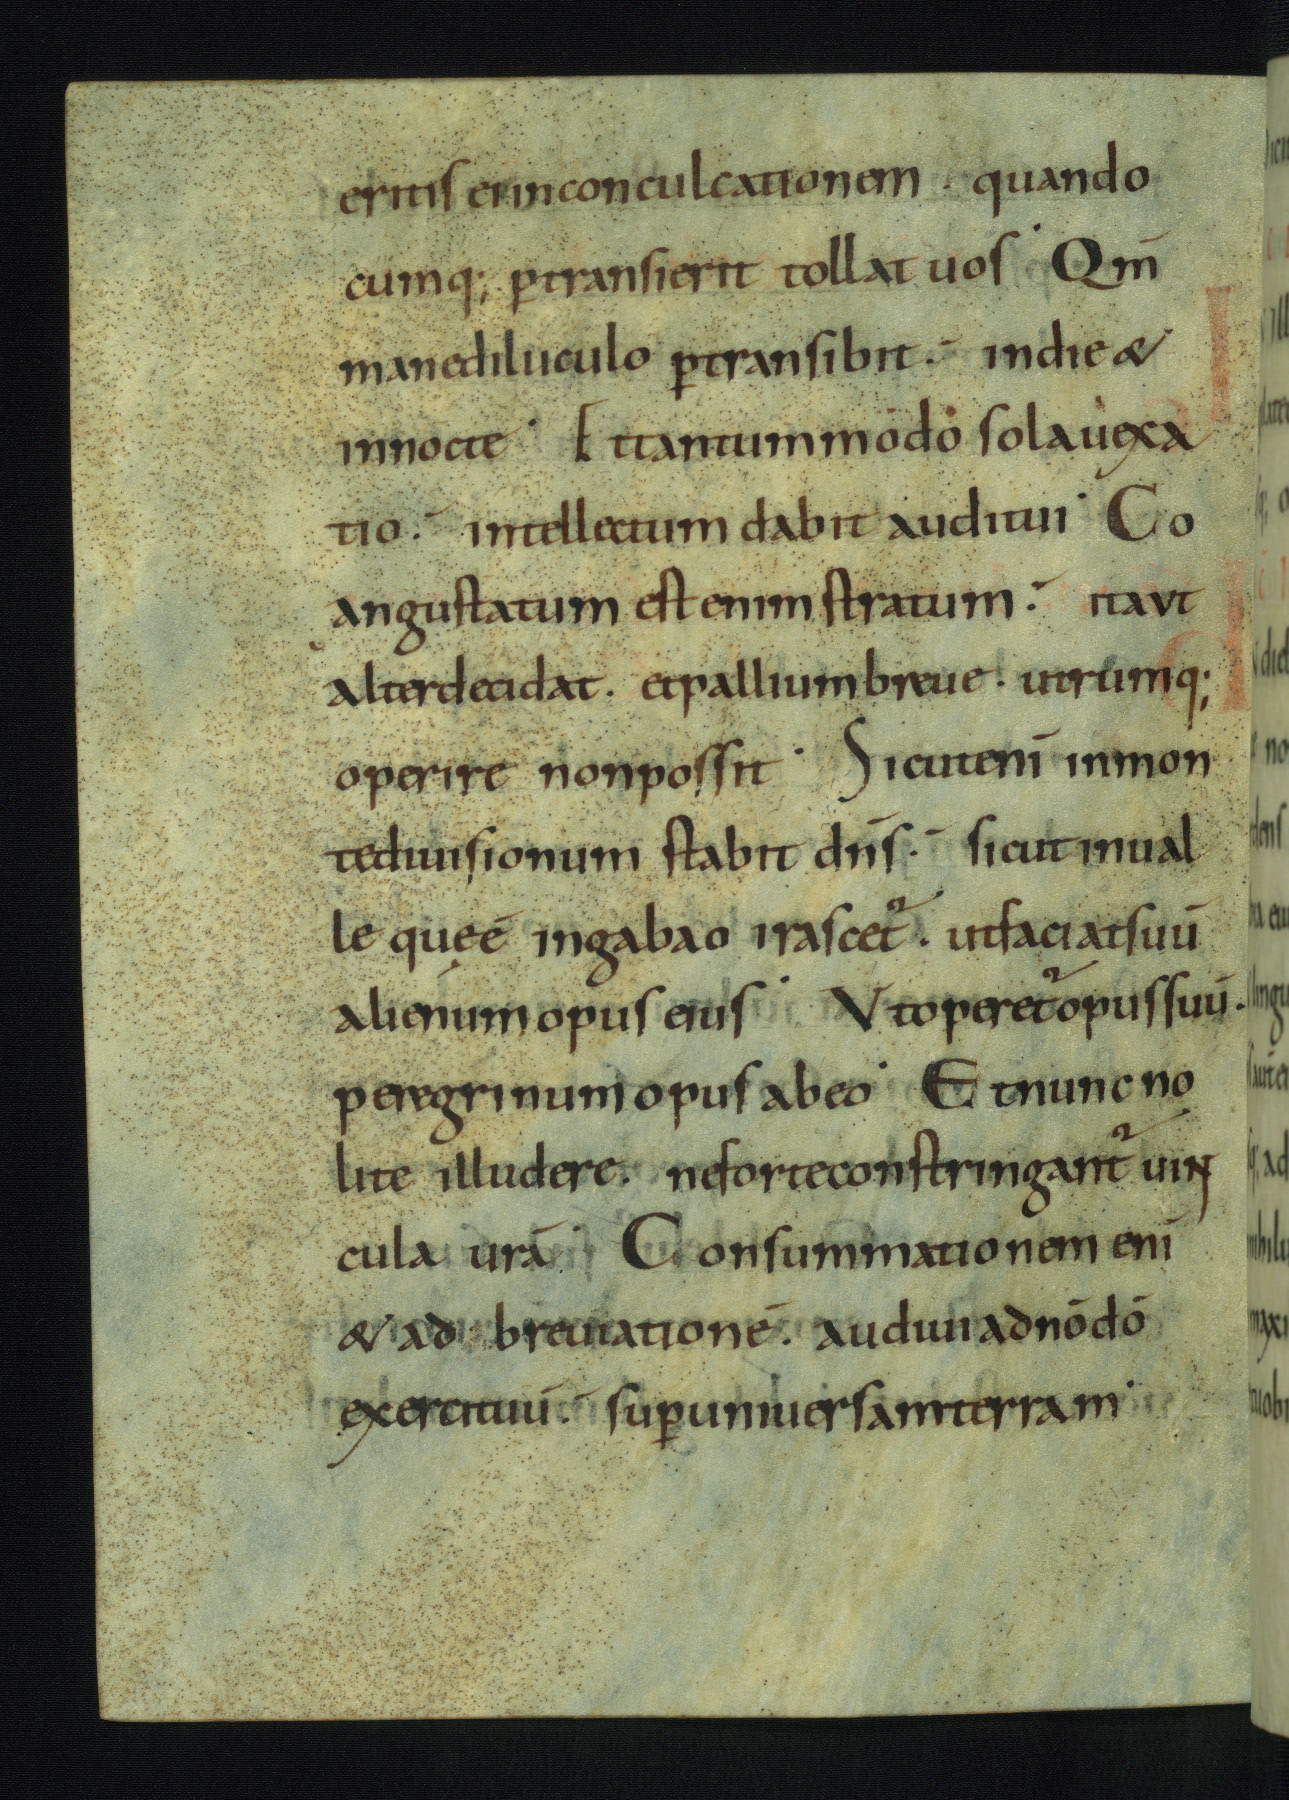 eritis ei in conculcationem . quando
cumq; ꝑtransierit tollat uos · Qm̄
mane diluculo ꝑtransibit . in die &
in nocte · Et tantummodo sola uexa
tio . intellectum dabit auditui · Co
angustatum est enim stratum . ita ut
alter decidat . et pallium breue . utrumq;
operire non possit · Sicut eni̅ in mon
te diuisionum stabit dn̅s . sicut in ual
le quę ē in gabao irascet᷑ . ut faciat suū
alienum opus eius · Ut operet᷑ opus suū .
peregrinum opus ab eo · Et nunc no
lite illudere . ne forte constringant᷑ uin
cula ur̅a · Consummationem eni̅
& ad breuiationē . audiui a dn̅o dō
exercituū . suꝑ uniuersam terram ·